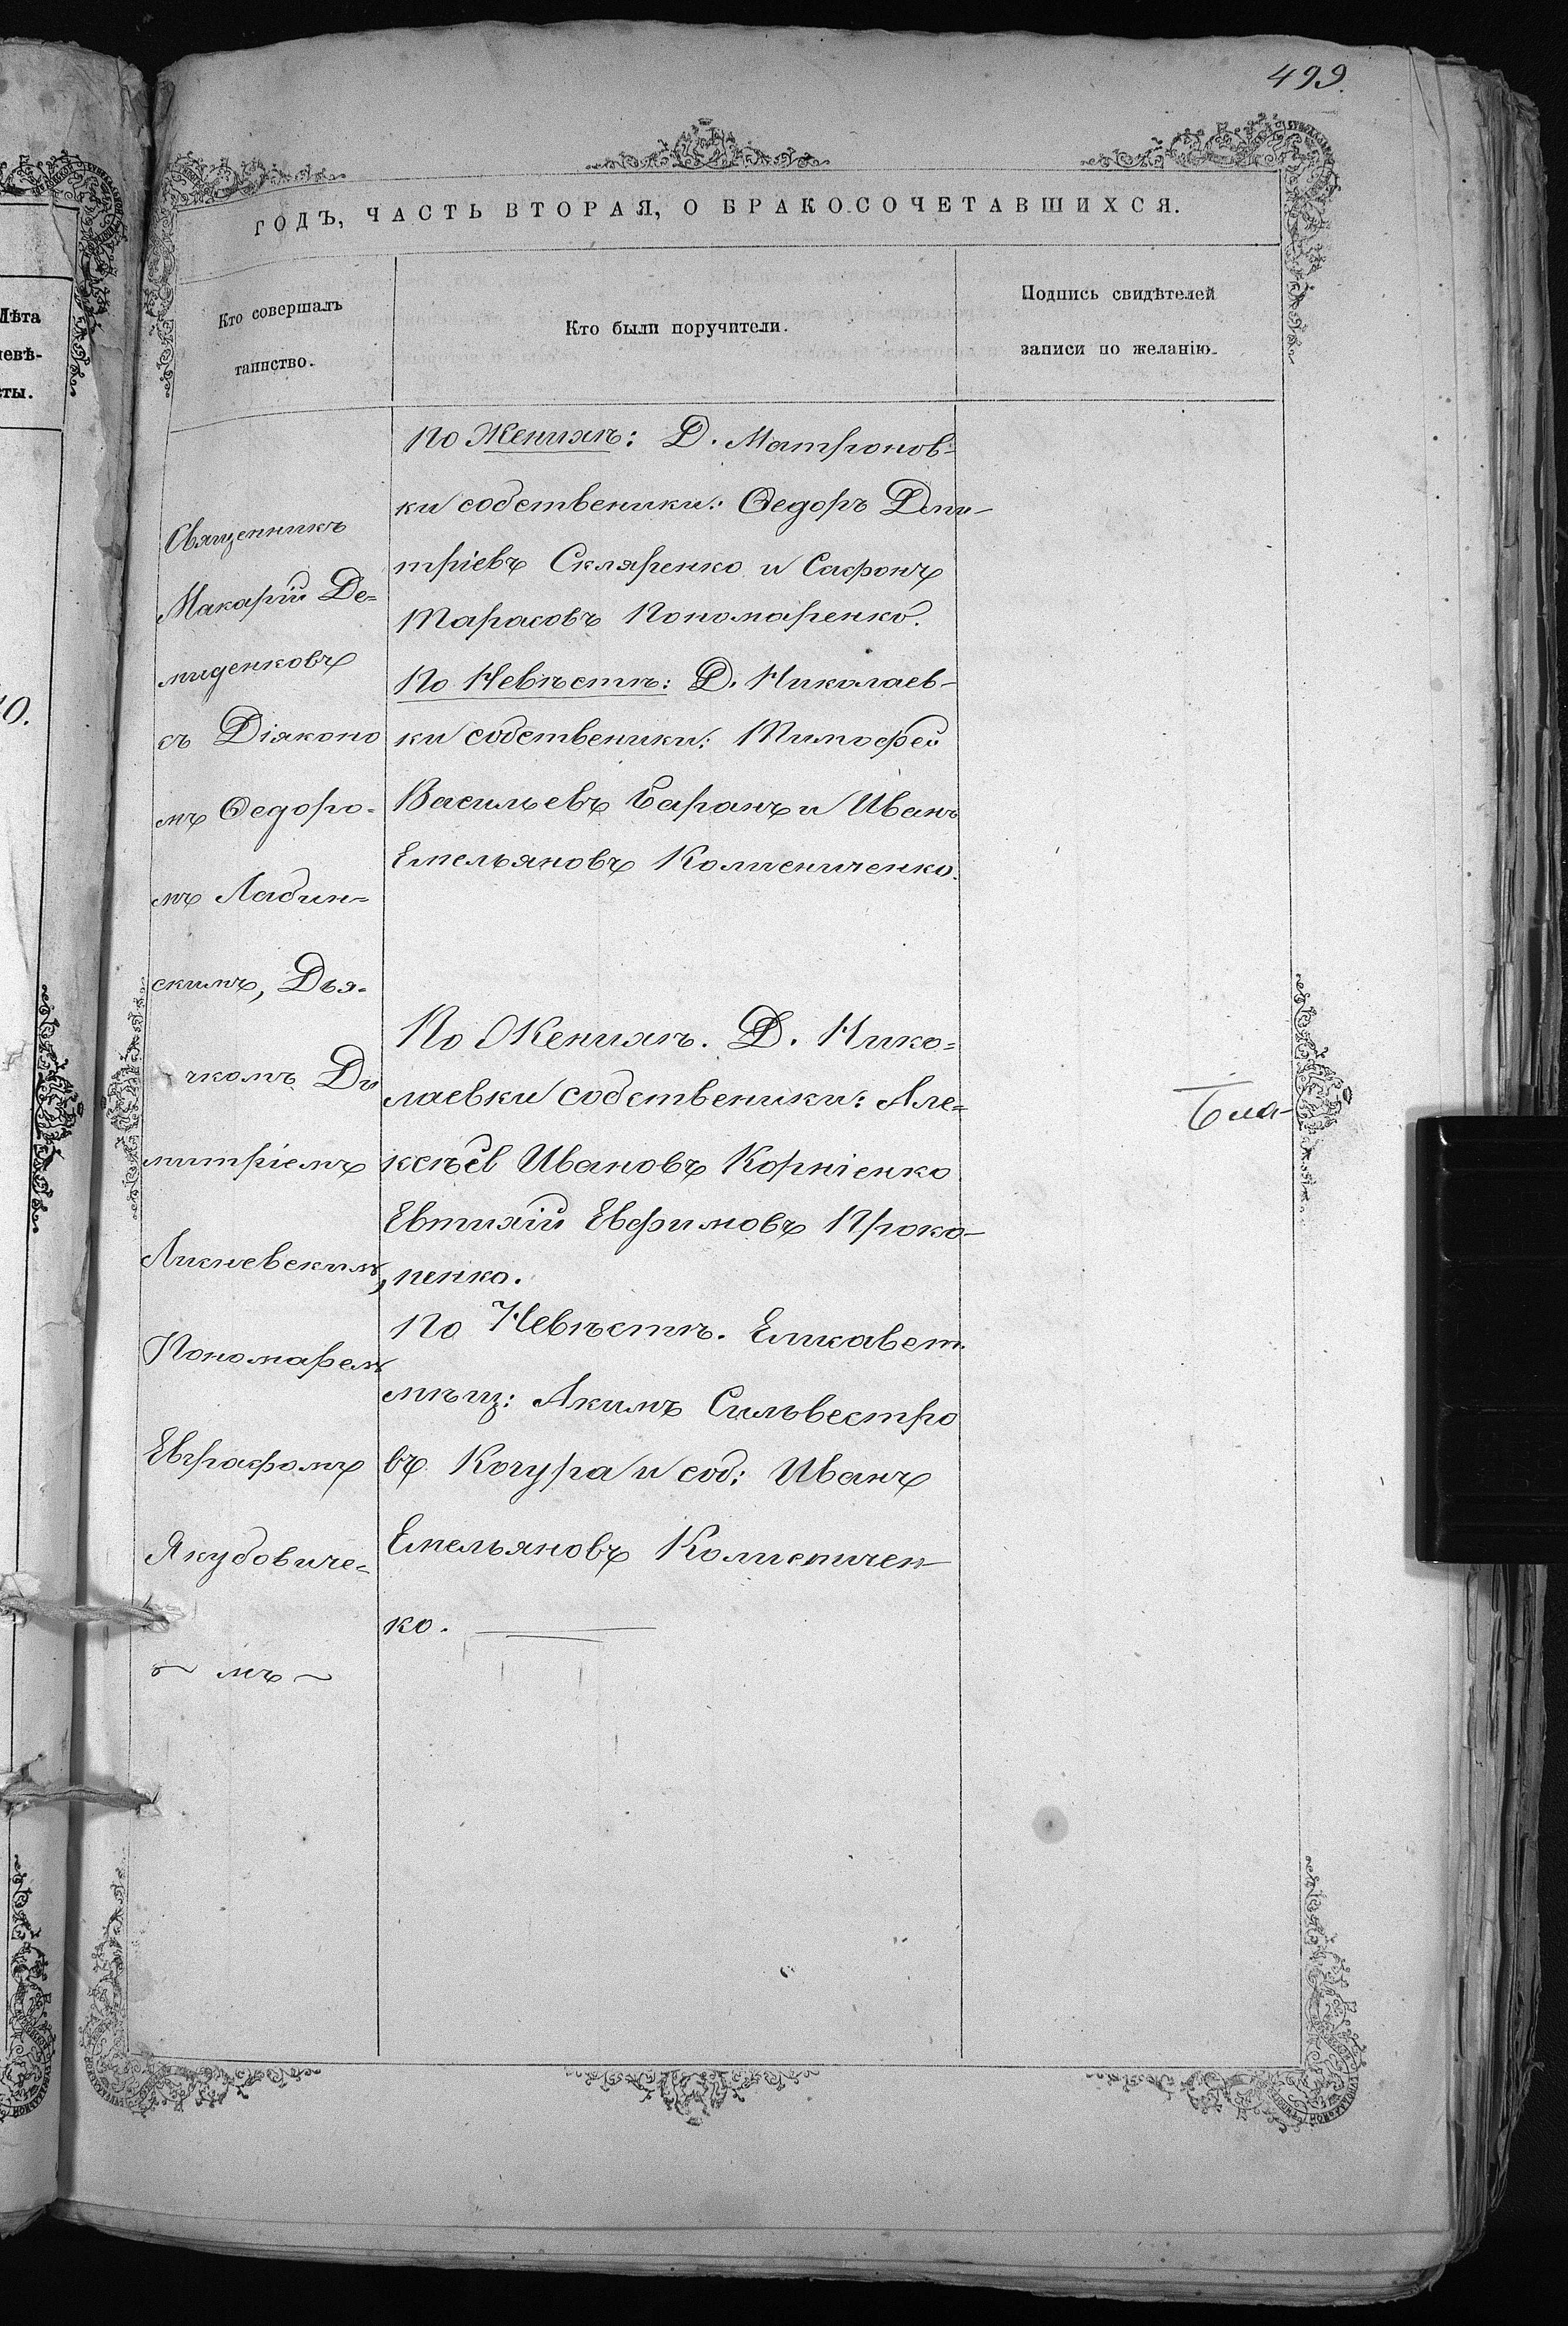 499.
ГОДЪ, ЧАСТЬ ВТОРАЯ, О БРАКОСОЧЕТАВШИХСЯ.
Кто совершалъ
таинство.
Кто были поручители.
Подпись свидѣтелей
записи по желанію.
Лѣта
невѣ-
сты.
Священникъ
Макарій Де=
миденковъ
съ Діяконо
мъ Ѳедоро=
мъ Лабин=
скимъ, Дья=
чкомъ Ди
митріемъ
Пономаремъ
Евграфомъ
Якубовиче=
мъ
По Женихѣ: Д. Матронов=
ки собственики: Ѳедоръ Дми-
тріевъ Скляренко и Сафонъ
Тарасовъ Пономаренко.
По Невѣстѣ: Д. Николаев-
ки собственики: Тимофей
Васильевъ Баранъ и Иванъ
Емельяновъ Колисниченко.
По Женихѣ. Д. Нико=
лаевки собственики: Але=
ксѣй Ивановъ Корніенко
Евтихій Евфимовъ Проко-
пенко.
По Невѣстѣ. Елисавет.
мѣщ: Акимъ Сильвестро
въ Кочура и соб: Иванъ
Емельяновъ Колисничен-
ко.